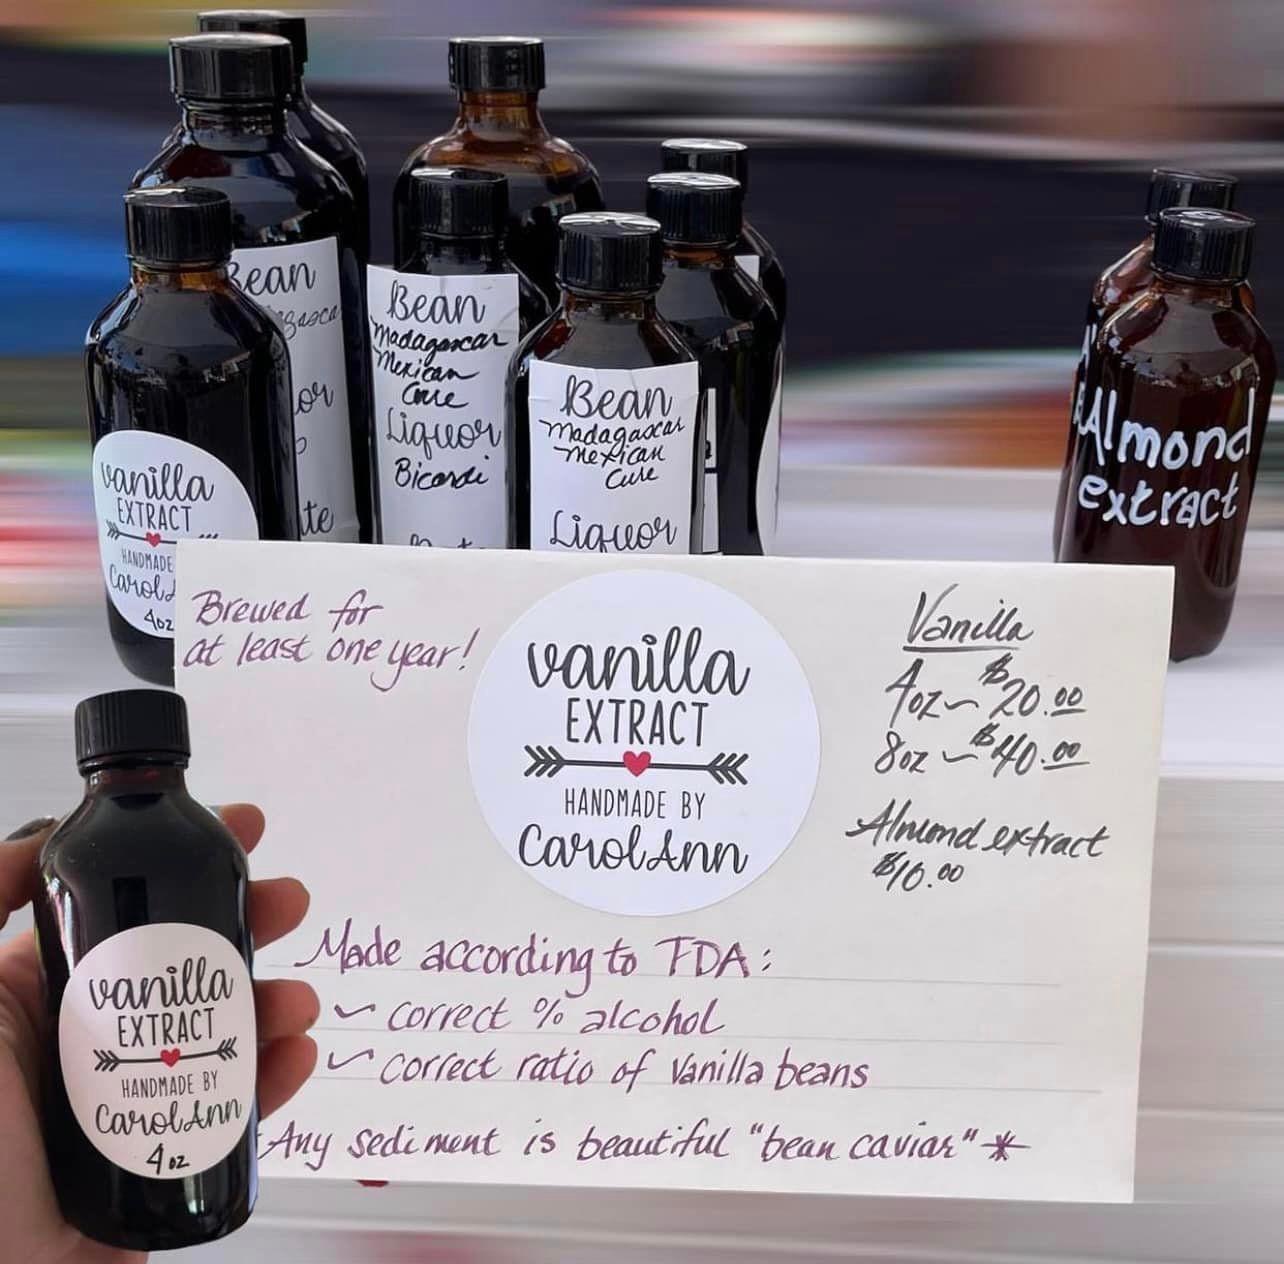 Bean
or
te
Bean
Madagascar
Mexican
Cure
Liquor
Bicardi
Bean
Madagascar
Mexican
Cure
Liquor
Almond
extract
vanilla
EXTRACT
HANDMADE
Carol
4oz
Brewed for
at least one year!
vanilla
EXTRACT
HANDMADE BY
CarolAnn
Vanilla
4oz ~ $20.00
8oz ~ $40.00
Almond extract
$10.00
Made according to FDA:
~ correct % alcohol
~ correct ratio of Vanilla beans
Any sediment is beautiful "bean caviar" *
vanilla
EXTRACT
HANDMADE BY
CarolAnn
4 oz